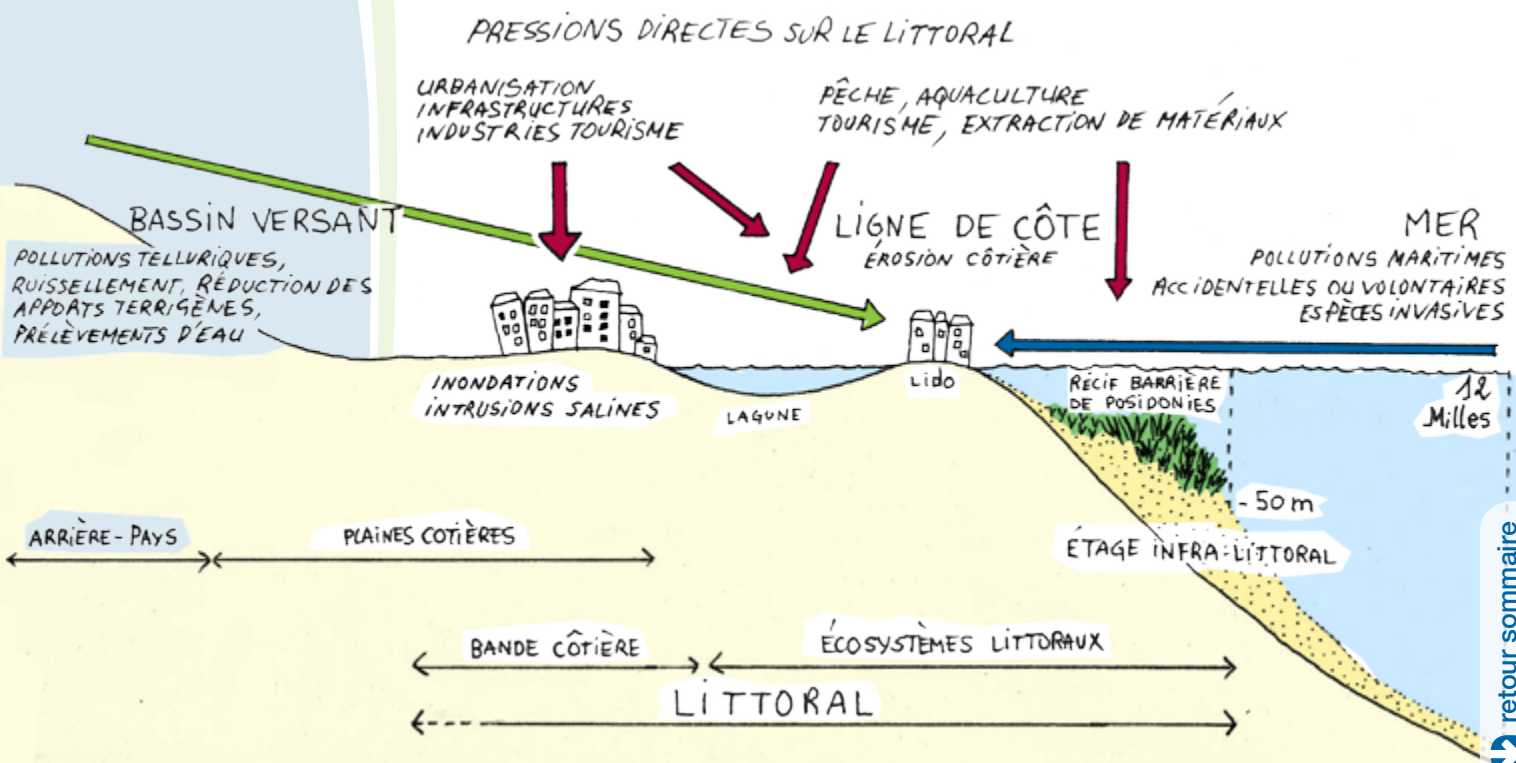 PRESSIONS DIRECTES SUR LE LITTORAL
URBANISATION
INFRASTRUCTURES
INDUSTRIES TOURISME
PÊCHE, AQUACULTURE
TOURISME, EXTRACTION DE MATÉRIAUX
BASSIN VERSANT
POLLUTIONS TELLURIQUES,
RUISSELLEMENT, RÉDUCTION DES
APPORTS TERRIGÈNES,
PRÉLÈVEMENTS D'EAU
LIGNE DE CÔTE
ÉROSION CÔTIÈRE
MER
POLLUTIONS MARITIMES
ACCIDENTELLES OU VOLONTAIRES
ESPÈCES INVASIVES
INONDATIONS
INTRUSIONS SALINES
LAGUNE
LIDO
RÉCIF BARRIÈRE
DE POSIDONIES
12
Milles
- 50 m
ARRIÈRE-PAYS
PLAINES COTIÈRES
ÉTAGE INFRA-LITTORAL
BANDE CÔTIÈRE
ÉCOSYSTÈMES LITTORAUX
LITTORAL
retour sommaire